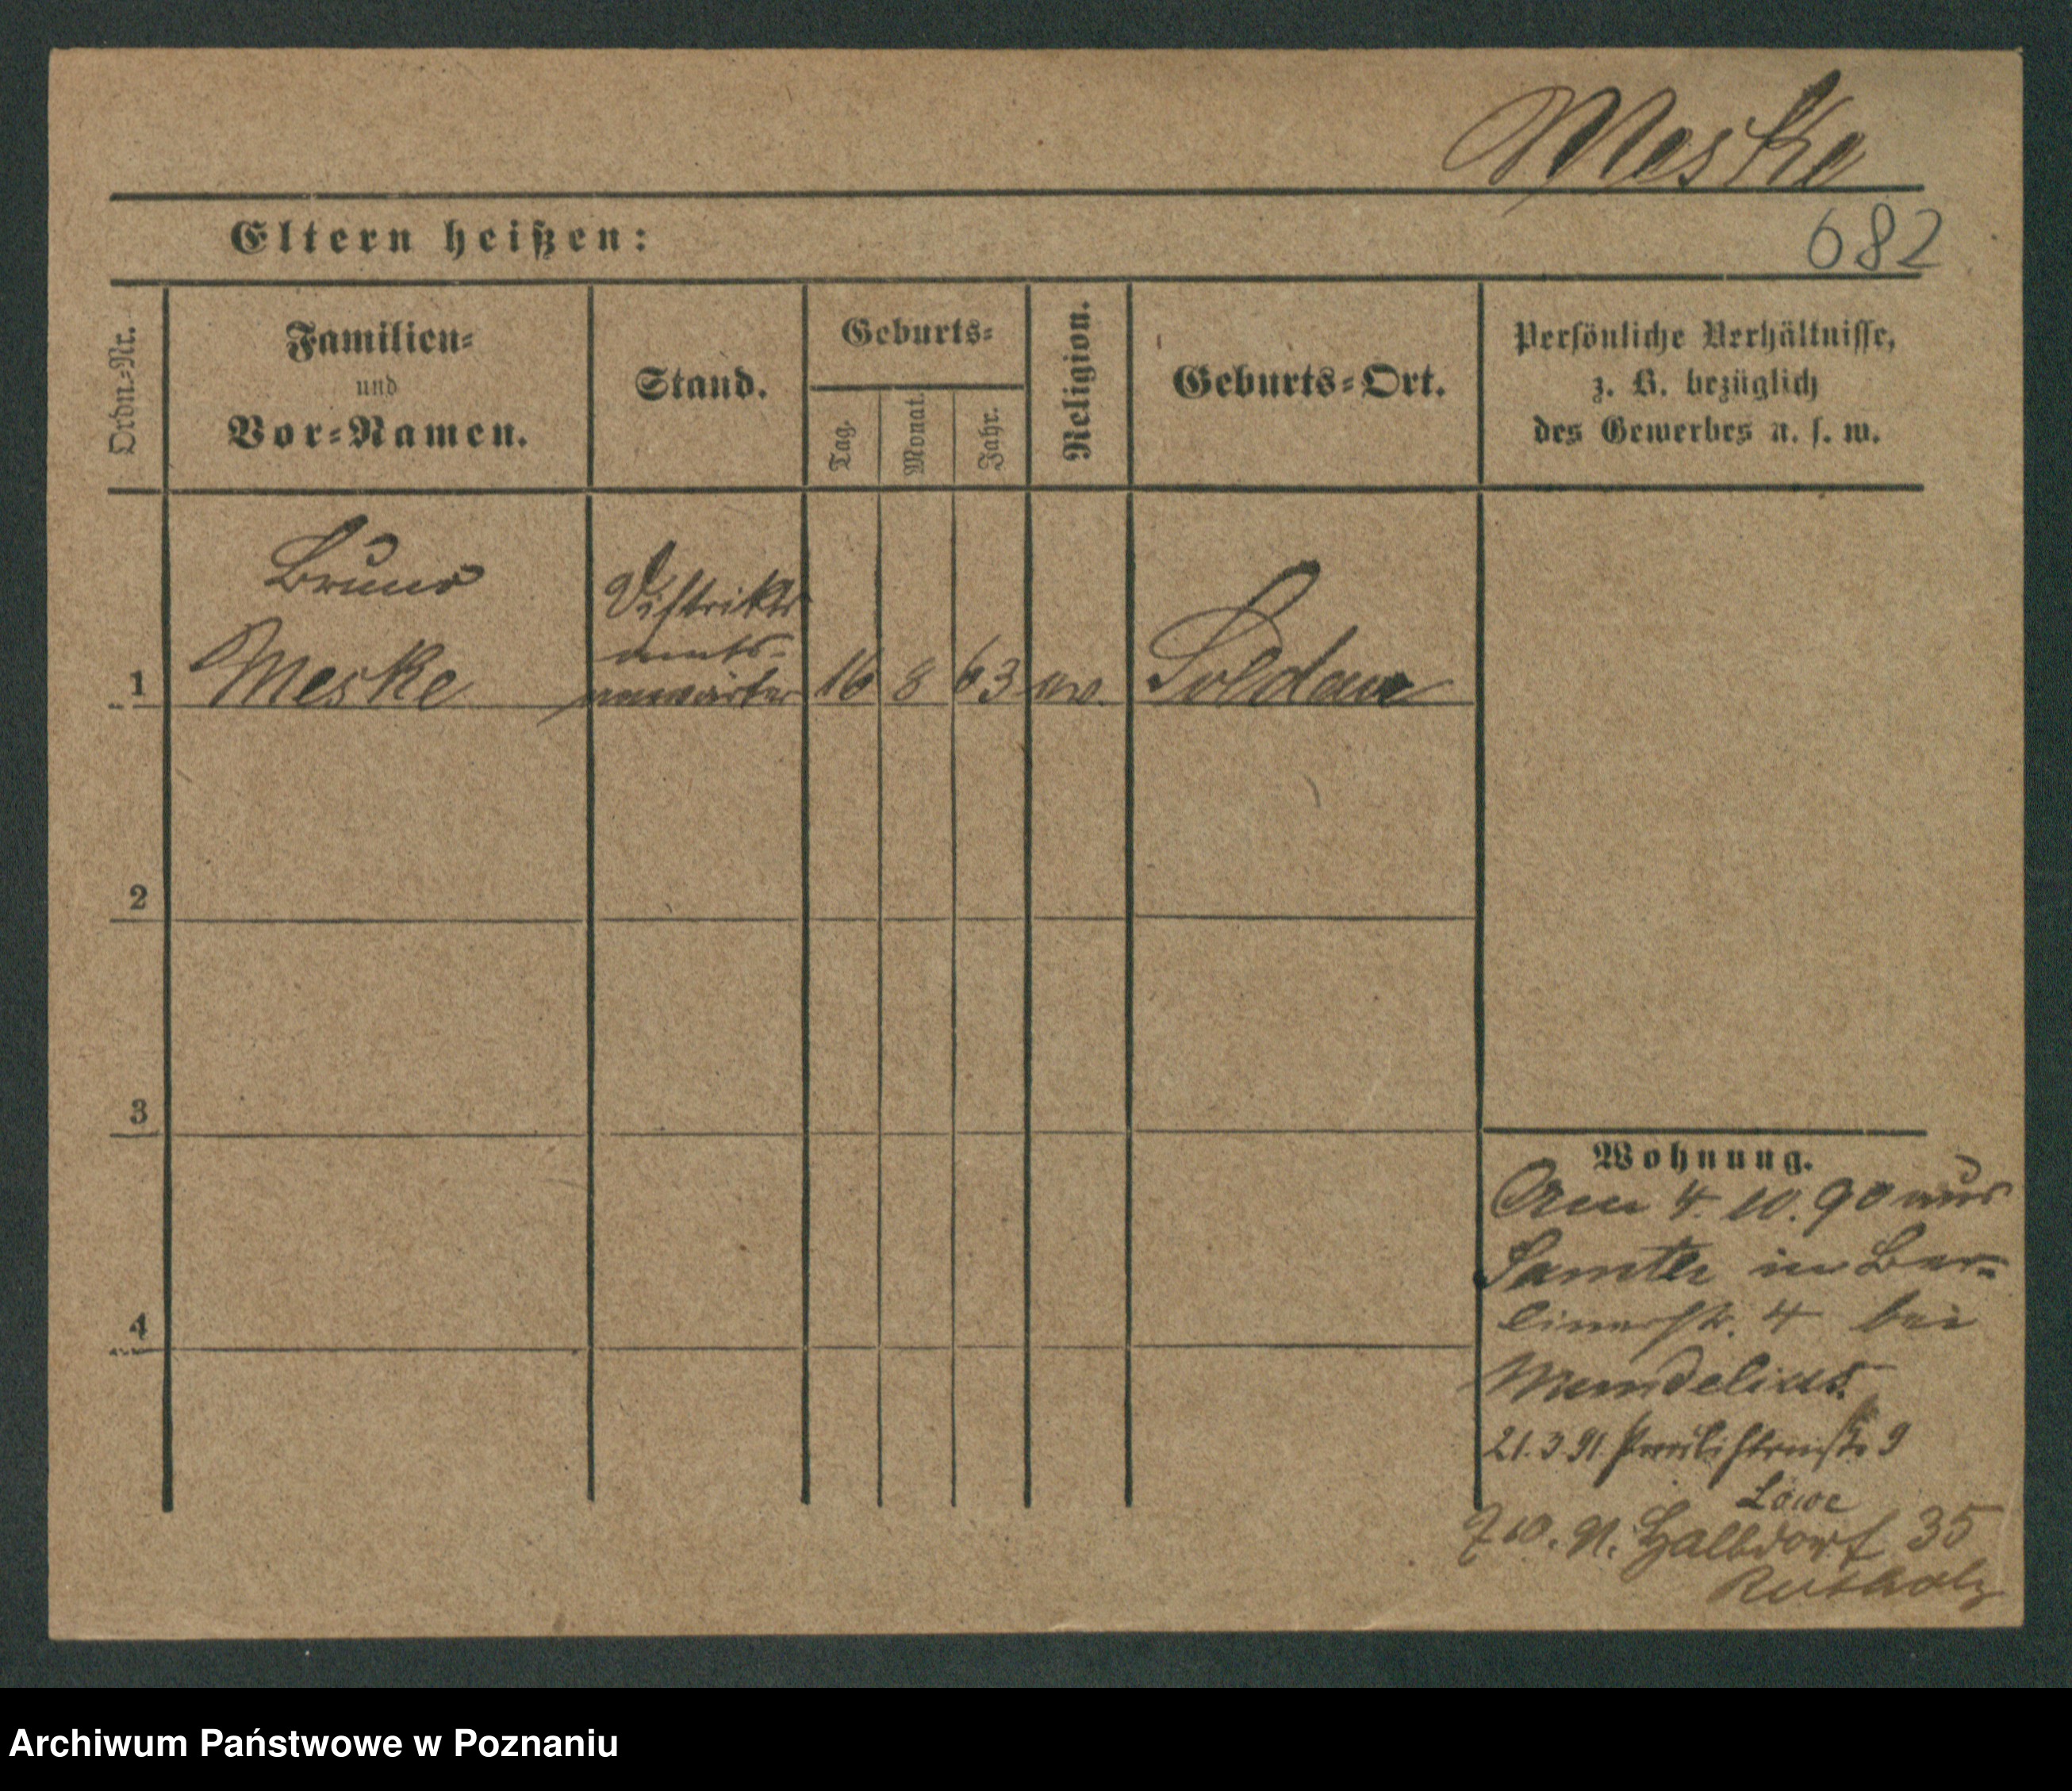 Meske
682
Eltern heißen:
Ordn.-Nr.
Familien-
und
Vor-Namen.
Stand.
Geburts-
Tag.
Monat.
Jahr.
Religion.
Geburts-Ort.
Persönliche Verhältnisse,
z. B. bezüglich
des Gewerbes u. s. w.
Bruno
Meske
Distrikts
amts-
anwärter
1
16
8
63
ev.
Soldau
2
3
4
Wohnung.
4. 10. 90 aus
Samter in Ber-
linerstr. 4 bei
Mendelius
21.3.91. Paulikirchstr. 9
Löwe
Halbdorf 35
Rotholz
Archiwum Państwowe w Poznaniu